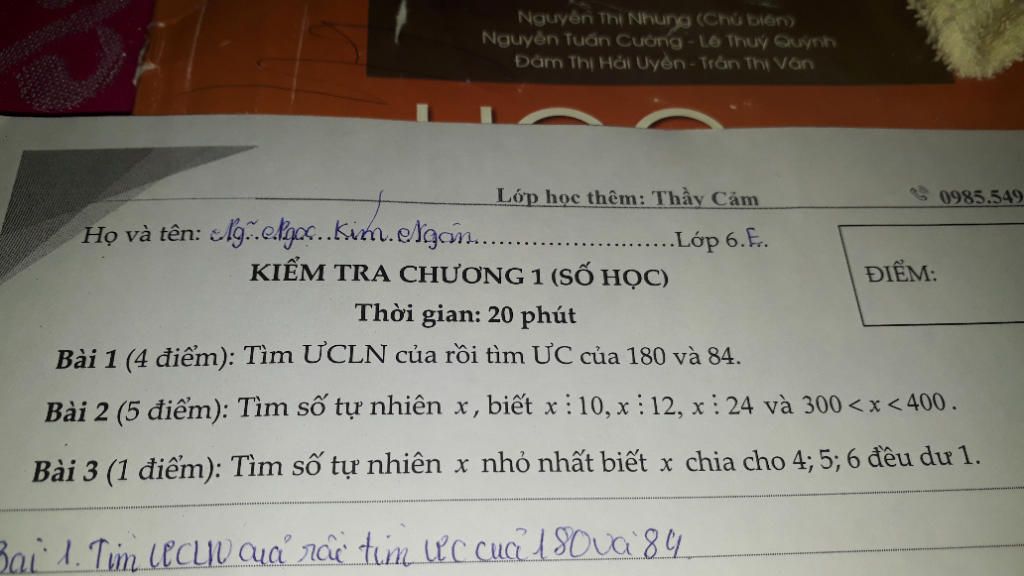 Nguyễn Thị Nhung (Chủ biên)
Nguyễn Tuấn Cường - Lê Thuý Quỳnh
Đàm Thị Hải Uyên - Trần Thị Vân
Lớp học thêm: Thầy Cảm
0985.549
Họ và tên: Ng~. Ngọc..Kim.Ngân..............................Lớp 6.E.
KIỂM TRA CHƯƠNG 1 (SỐ HỌC)
ĐIỂM:
Thời gian: 20 phút
Bài 1 (4 điểm): Tìm ƯCLN của rồi tìm ƯC của 180 và 84.
Bài 2 (5 điểm): Tìm số tự nhiên x, biết x⋮10, x⋮12, x⋮24 và 300 < x < 400.
Bài 3 (1 điểm): Tìm số tự nhiên x nhỏ nhất biết x chia cho 4; 5; 6 đều dư 1.
Bài 1. Tìm ƯCLN của rồi tìm ƯC của 180 và 84